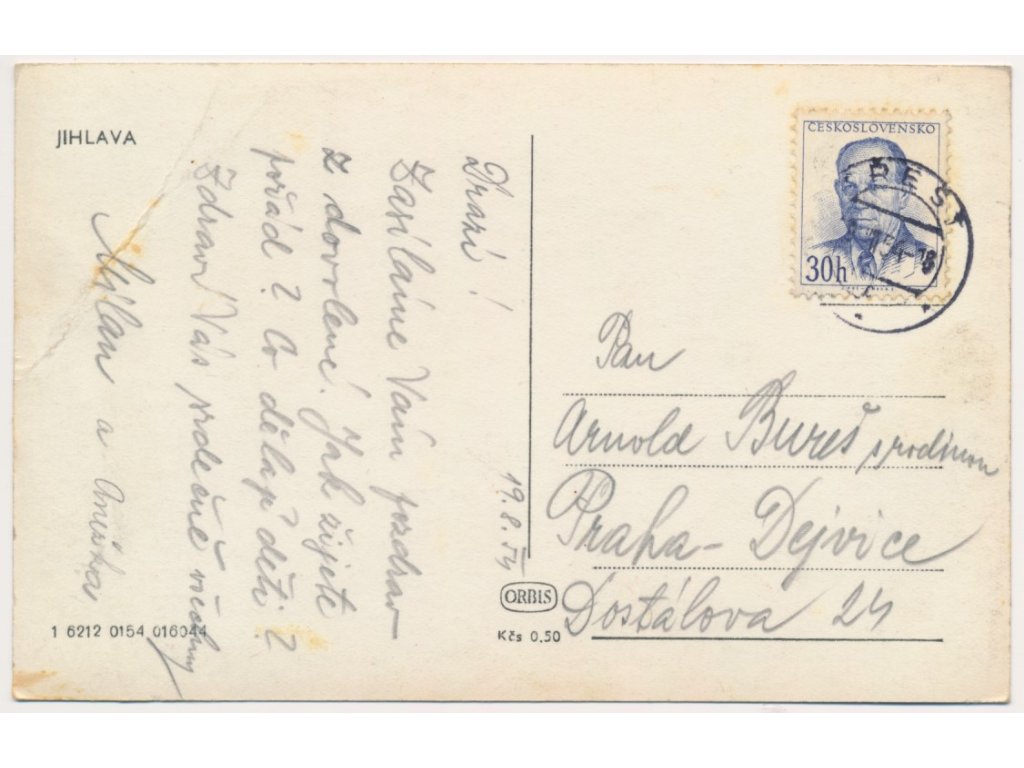 JIHLAVA
Drazí!
Zasíláme Vám pozdrav
z dovolené. Jak žijete
pořád? Co dělají děti?
Zdraví Vás srdečně všechny
Milan
a Anežka
19.8.54
1 6212 0154 016044
ORBIS
Kčs 0,50
ČESKOSLOVENSKO
30h
Pan
Arnold Bureš s rodinou
Praha - Dejvice
Dostálova 24